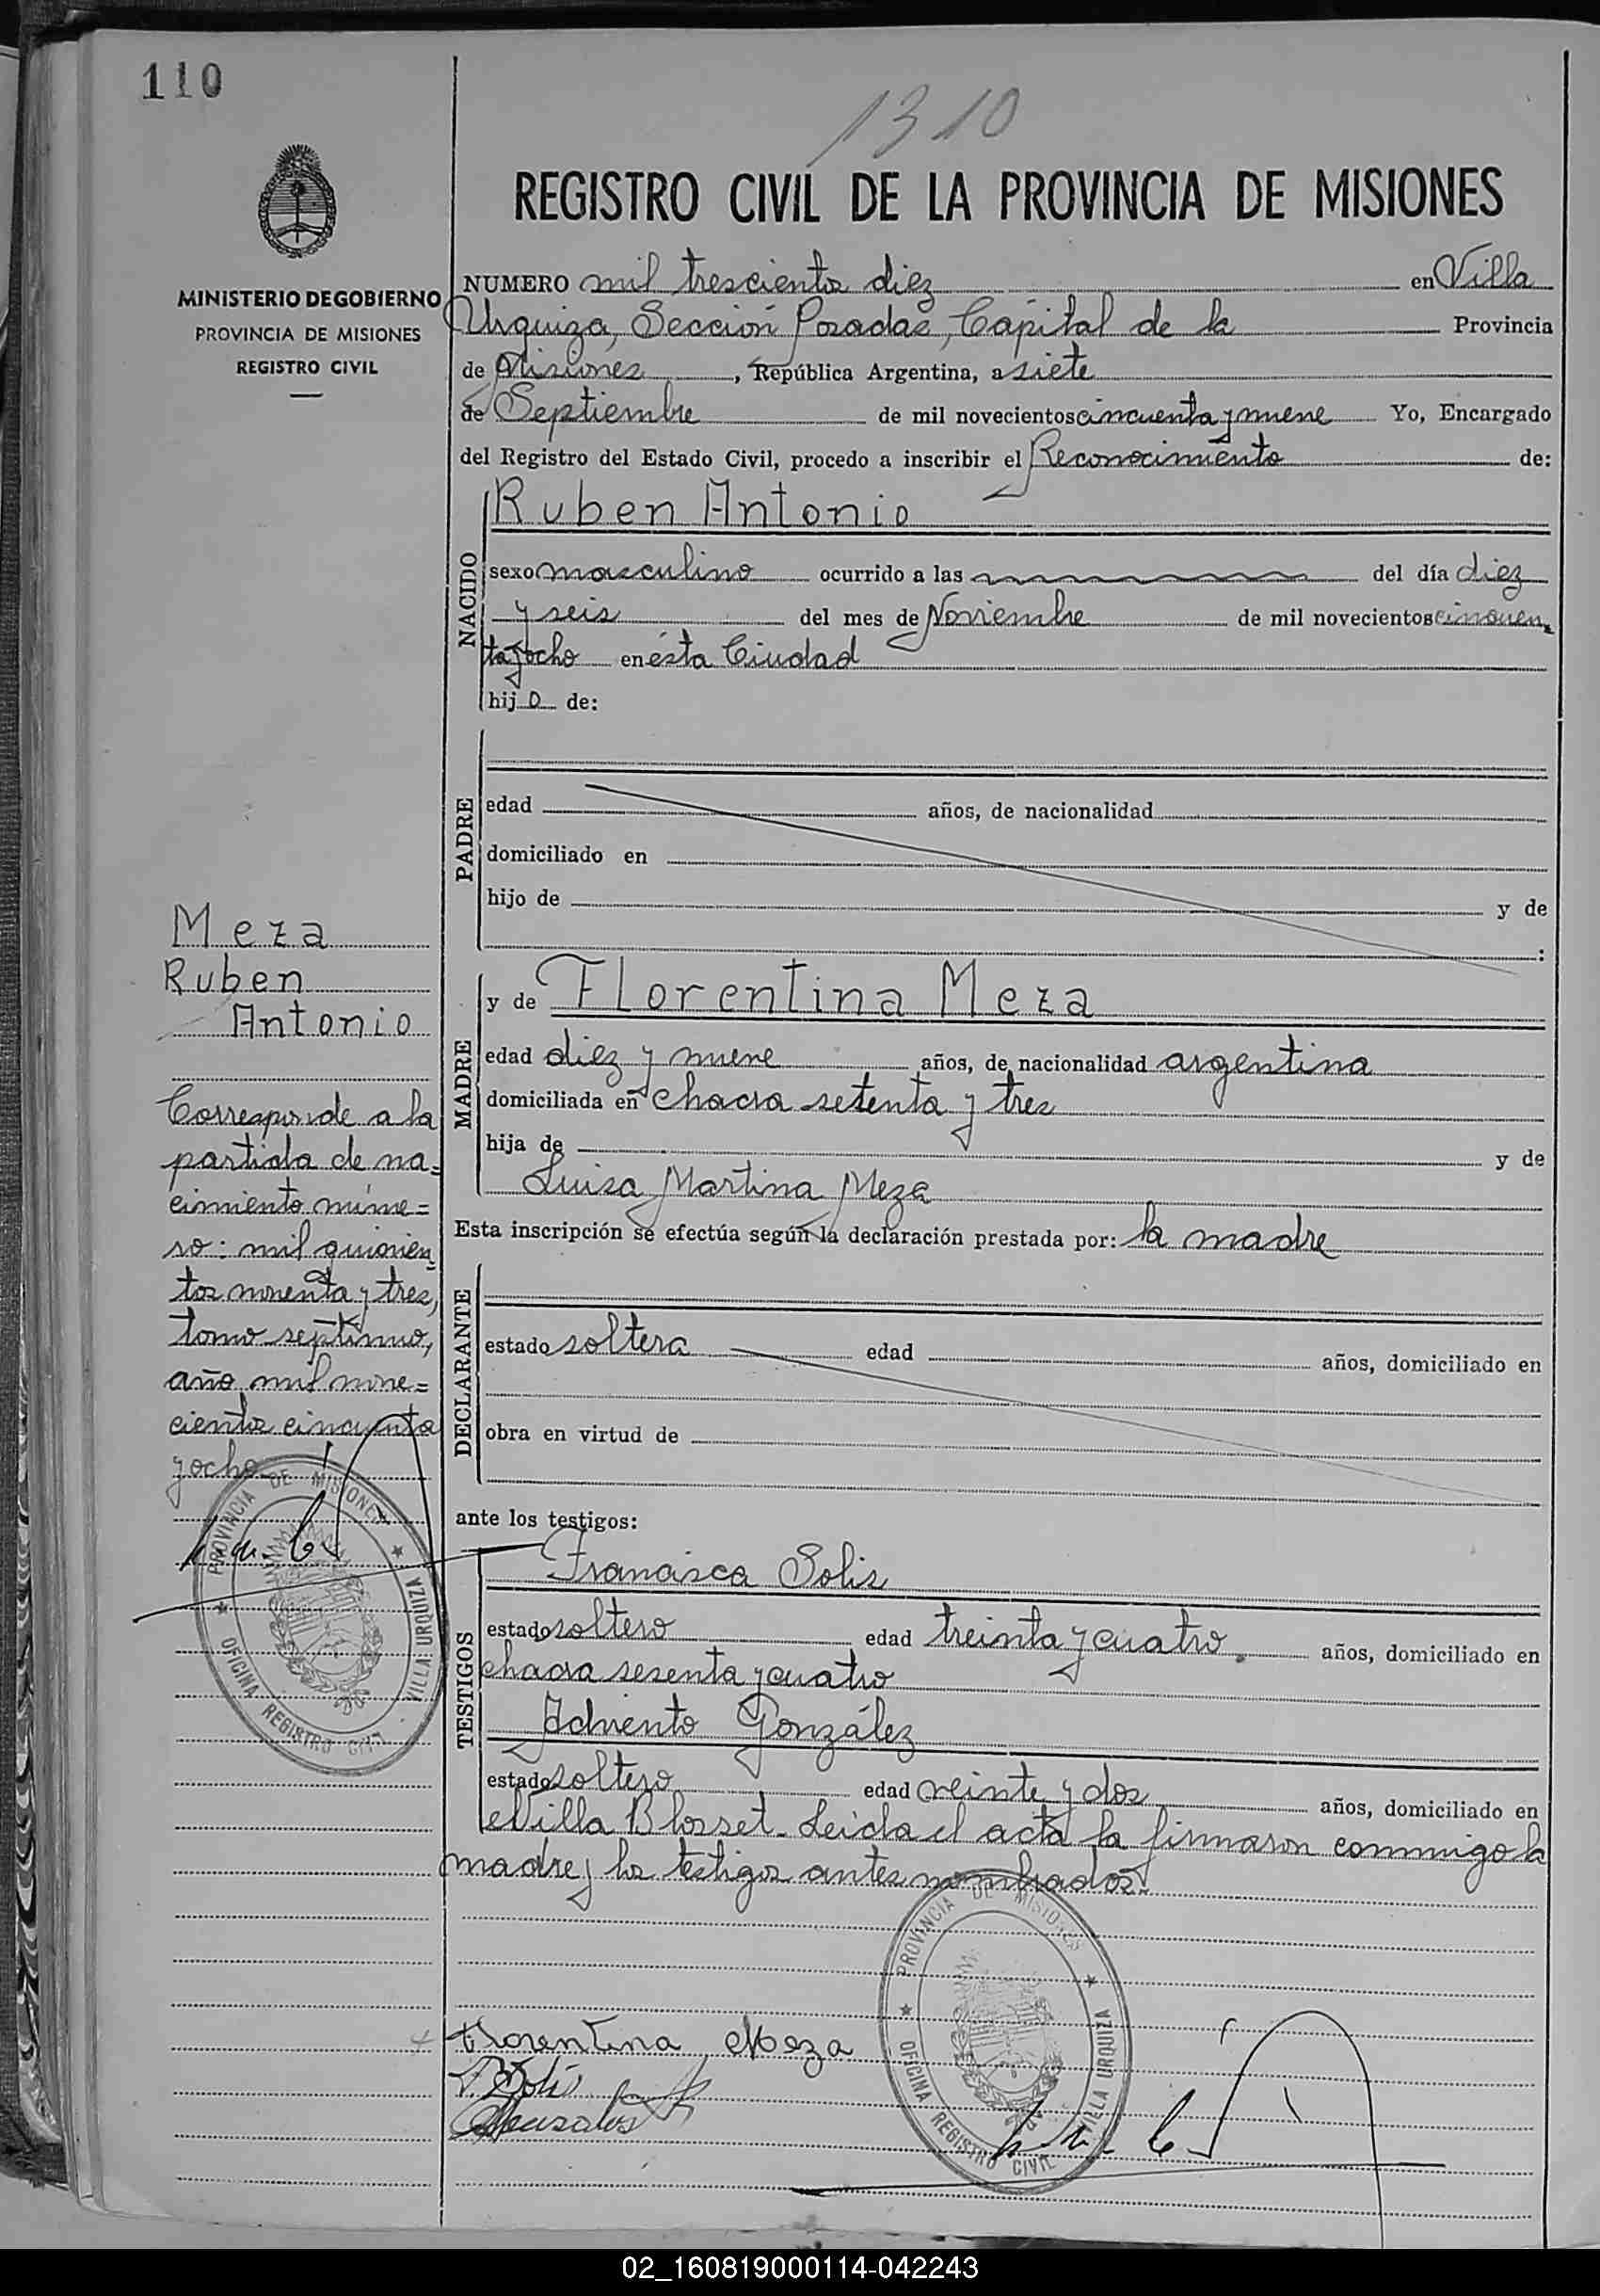 110
1310
REGISTRO CIVIL DE LA PROVINCIA DE MISIONES
MINISTERIO DE GOBIERNO
PROVINCIA DE MISIONES
REGISTRO CIVIL
NUMERO mil trescientos diez en Villa
Urquiza, Sección Posadas, Capital de la Provincia
de Misiones, República Argentina, a siete
de Septiembre de mil novecientos cincuenta y nueve Yo, Encargado
del Registro del Estado Civil, procedo a inscribir el Reconocimiento de:
NACIDO
Ruben Antonio
sexo masculino ocurrido a las del día diez
y seis del mes de Noviembre de mil novecientos cincuen
ta y ocho en ésta Ciudad
hijo de:
PADRE
edad años, de nacionalidad
domiciliado en
hijo de y de
:
Meza
Ruben
Antonio
Corresponde a la
partida de na=
cimiento núme=
ro: mil quinien
tos noventa y tres,
tomo septimo,
año mil nove=
cientos cincuenta
y ocho
MADRE
y de Florentina Meza
edad diez y nueve años, de nacionalidad argentina
domiciliada en chacra setenta y tres
hija de y de
Luisa Martina Meza
Esta inscripción se efectúa según la declaración prestada por: la madre
DECLARANTE
estado soltera edad años, domiciliado en
obra en virtud de
ante los testigos:
TESTIGOS
Francisca Solis
estado soltero edad treinta y cuatro años, domiciliado en
chacra sesenta y cuatro
Adviento González
estado soltero edad veinte y dos años, domiciliado en
Villa Blosset. Leida el acta la firmaron conmigo la
madre y los testigos antes nombrados.
PROVINCIA DE MISIONES
OFICINA REGISTRO CIVIL VILLA URQUIZA
Florentina Meza
PROVINCIA DE MISIONES
OFICINA REGISTRO CIVIL VILLA URQUIZA
02_160819000114-042243